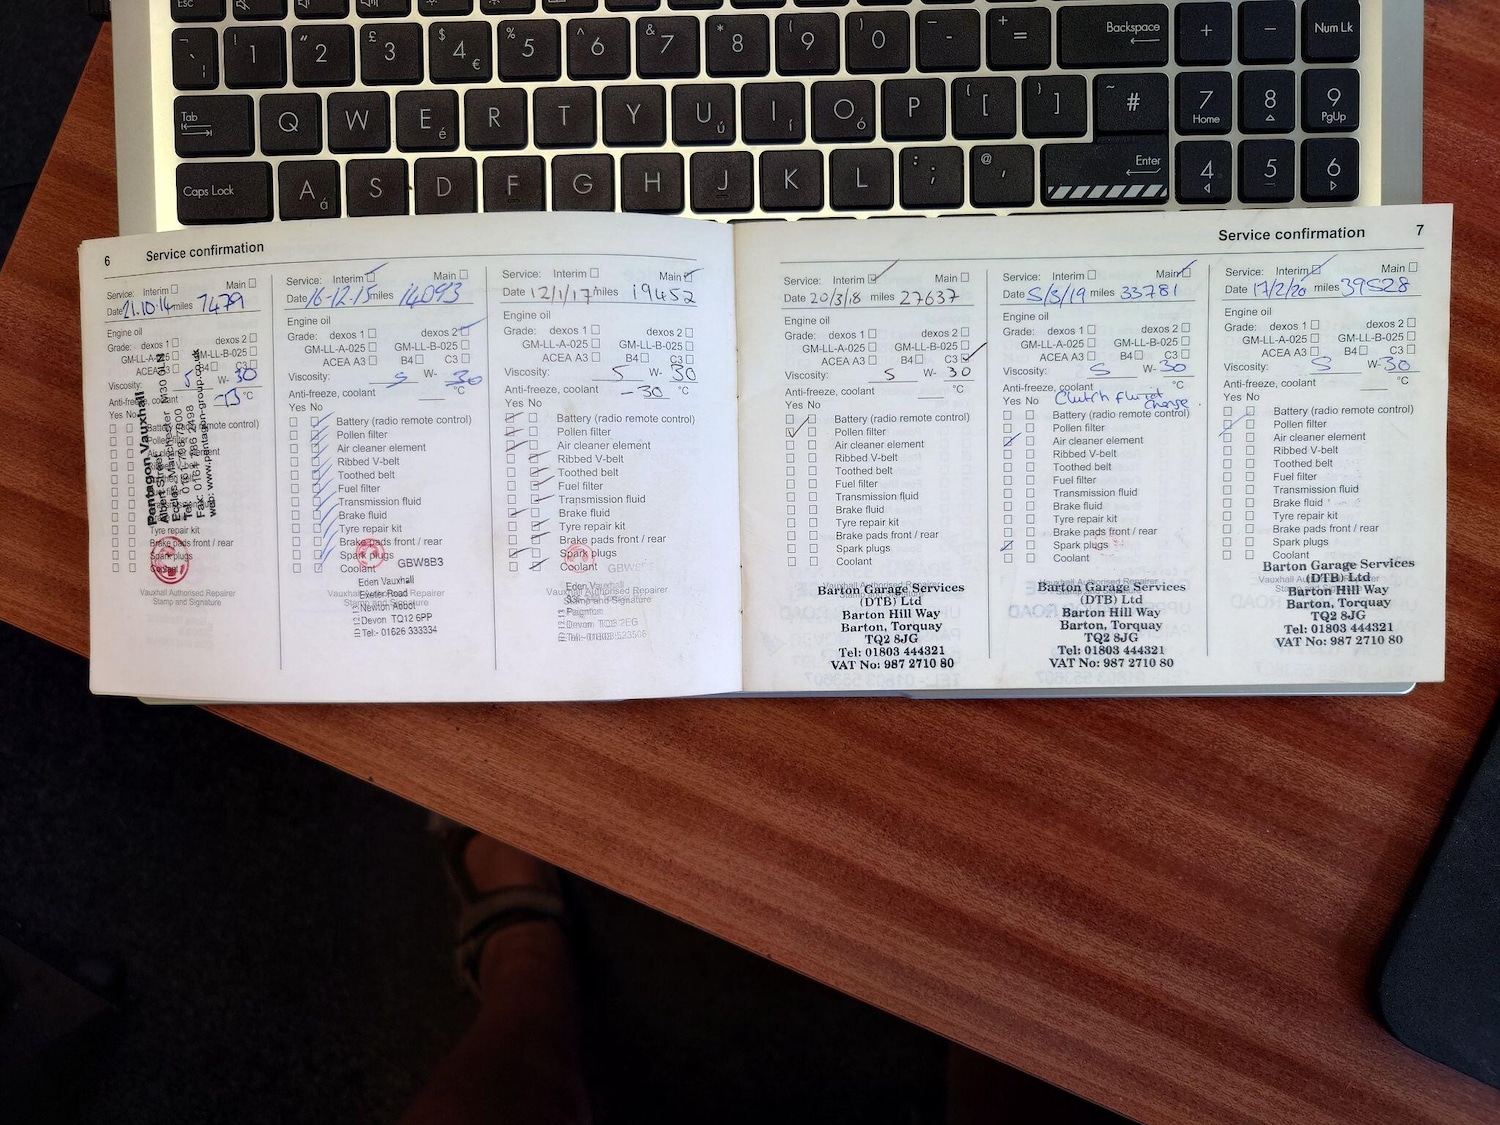 Esc
! 1
" 2
£ 3
$ 4 €
% 5
^ 6
& 7
* 8
( 9
) 0
_ -
+ =
Backspace
+
-
Num Lk
Tab
Q W E é R T Y U ú I í O ó P { [ } ] ~ #
7 Home
8
9 PgUp
Caps Lock
A á S D F G H J K L : ; @ '
Enter
4
5
6
6 Service confirmation
Service: Interim Main
Date 21.10.14 miles 7479
Engine oil
Grade: dexos 1 dexos 2
GM-LL-A-025 GM-LL-B-025
ACEA A3 C3
Viscosity: 5 W- 30
Anti-freeze, coolant °C
Yes No
Battery (radio remote control)
Pollen filter
Air cleaner element
Ribbed V-belt
Toothed belt
Fuel filter
Transmission fluid
Brake fluid
Tyre repair kit
Brake pads front / rear
Spark plugs
Coolant
Pentagon Vauxhall
Albert Street
Eccles Manchester M30
Tel: 0161
Fax: 0161 786 2498
web: www.pentagon-group.co.uk
Vauxhall Authorised Repairer
Stamp and Signature
Service: Interim Main
Date 16-12-15 miles 14093
Engine oil
Grade: dexos 1 dexos 2
GM-LL-A-025 GM-LL-B-025
ACEA A3 B4 C3
Viscosity: 5 W- 30
Anti-freeze, coolant °C
Yes No
Battery (radio remote control)
Pollen filter
Air cleaner element
Ribbed V-belt
Toothed belt
Fuel filter
Transmission fluid
Brake fluid
Tyre repair kit
Brake pads front / rear
Spark plugs
Coolant
GBW8B3
Eden Vauxhall
Exeter Road
Vauxhall Authorised Repairer
Stamp and Signature
Newton Abbot
Devon TQ12 6PP
Tel:- 01626 333334
Service: Interim Main
Date 12/1/17 miles 19452
Engine oil
Grade: dexos 1 dexos 2
GM-LL-A-025 GM-LL-B-025
ACEA A3 B4 C3
Viscosity: 5 W- 30
Anti-freeze, coolant -30 °C
Yes No
Battery (radio remote control)
Pollen filter
Air cleaner element
Ribbed V-belt
Toothed belt
Fuel filter
Transmission fluid
Brake fluid
Tyre repair kit
Brake pads front / rear
Spark plugs
Coolant
Eden Vauxhall
Vauxhall Authorised Repairer
Stamp and Signature
Paignton
Devon
Service confirmation 7
Service: Interim Main
Date 20/3/18 miles 27637
Engine oil
Grade: dexos 1 dexos 2
GM-LL-A-025 GM-LL-B-025
ACEA A3 B4 C3
Viscosity: 5 W- 30
Anti-freeze, coolant °C
Yes No
Battery (radio remote control)
Pollen filter
Air cleaner element
Ribbed V-belt
Toothed belt
Fuel filter
Transmission fluid
Brake fluid
Tyre repair kit
Brake pads front / rear
Spark plugs
Coolant
Vauxhall Authorised Repairer
Barton Garage Services
(DTB) Ltd
Barton Hill Way
Barton, Torquay
TQ2 8JG
Tel: 01803 444321
VAT No: 987 2710 80
Service: Interim Main
Date 5/3/19 miles 33781
Engine oil
Grade: dexos 1 dexos 2
GM-LL-A-025 GM-LL-B-025
ACEA A3 B4 C3
Viscosity: 5 W- 30
Anti-freeze, coolant °C
Clutch fluid change.
Yes No
Battery (radio remote control)
Pollen filter
Air cleaner element
Ribbed V-belt
Toothed belt
Fuel filter
Transmission fluid
Brake fluid
Tyre repair kit
Brake pads front / rear
Spark plugs
Coolant
Vauxhall Authorised Repairer
Barton Garage Services
(DTB) Ltd
Barton Hill Way
Barton, Torquay
TQ2 8JG
Tel: 01803 444321
VAT No: 987 2710 80
Service: Interim Main
Date 17/2/20 miles 39528
Engine oil
Grade: dexos 1 dexos 2
GM-LL-A-025 GM-LL-B-025
ACEA A3 B4 C3
Viscosity: 5 W- 30
Anti-freeze, coolant °C
Yes No
Battery (radio remote control)
Pollen filter
Air cleaner element
Ribbed V-belt
Toothed belt
Fuel filter
Transmission fluid
Brake fluid
Tyre repair kit
Brake pads front / rear
Spark plugs
Coolant
Barton Garage Services
(DTB) Ltd
Barton Hill Way
Barton, Torquay
TQ2 8JG
Tel: 01803 444321
VAT No: 987 2710 80